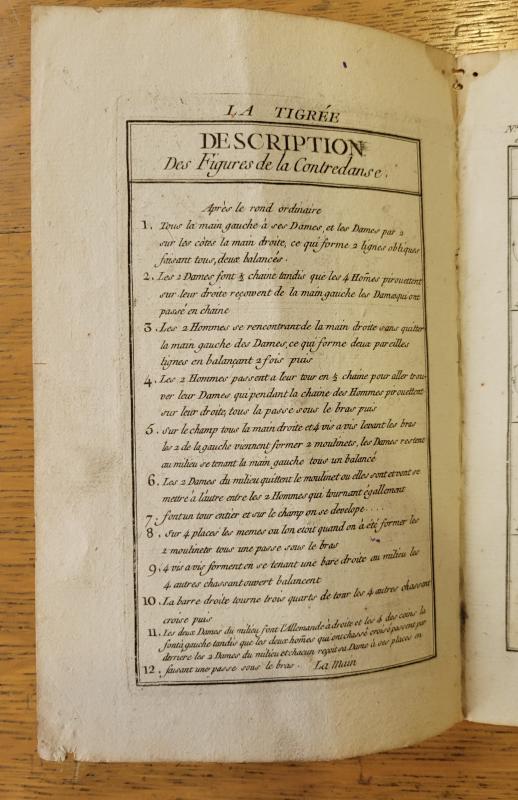 LA TIGRÉE
DESCRIPTION
Des Figures de la Contredanse.
Après le rond ordinaire
1. Tous la main gauche à ses Dames, et les Dames par 2
sur les côtés la main droite, ce qui forme 2 lignes obliques
faisant tous, deux balancés.
2. Les 2 Dames font ½ chaine tandis que les 4 Hom̃es pirouettent
sur leur droite reçoivent de la main gauche les Dames qui ont
passé en chaine
3. Les 2 Hommes se rencontrant de la main droite sans quitter
la main gauche des Dames, ce qui forme deux pareilles
lignes en balançant 2 fois puis
4. Les 2 Hommes passent a leur tour en ½ chaine pour aller trou-
ver leur Dames qui pendant la chaine des Hommes pirouettent
sur leur droite, tous la passe sous le bras puis
5. Sur le champ tous la main droite et 4 vis a vis levant les bras
les 2 de la gauche viennent former 2 moulinets, les Dames restent
au milieu se tenant la main gauche tous un balancé
6. Les 2 Dames du milieu quittent le moulinet ou elles sont et vont se
mettre à l'autre entre les 2 Hommes qui tournant égallement
7. font un tour entier et sur le champ on se dévelope....
8. Sur 4 places les memes ou lon etoit quand on a été former les
2 moulinets tous une passe sous le bras
9. 4 vis a vis forment en se tenant une bare droite au milieu les
4 autres chassant ouvert balancent
10. La barre droite tourne trois quarts de tour les 4 autres chassant
croisé puis
11. Les deux Dames du milieu font l'Allemande à droite et les 4 des coins la
font à gauche tandis que les deux hom̃es qui ont chassé croisé passent par
derriere les 2 Dames du milieu et chacun reçoit sa Dame à ses places en
12. faisant une passe sous le bras. La Main